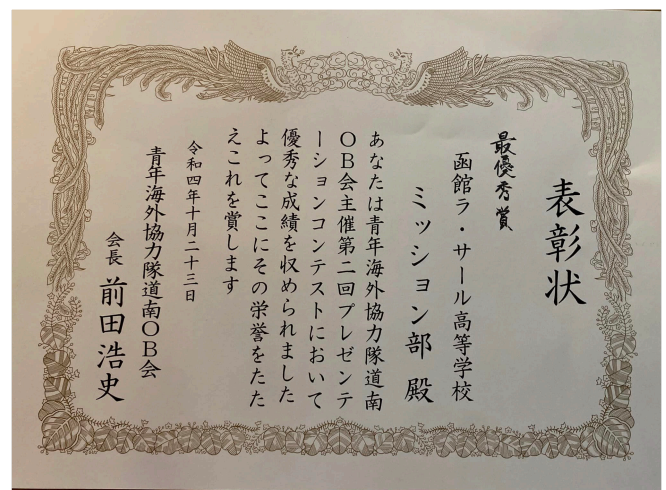 表彰状
最優秀賞
函館ラ・サール高等学校
ミッション部 殿
あなたは青年海外協力隊道南
OB会主催第二回プレゼンテ
ーションコンテストにおいて
優秀な成績を収められました
よってここにその栄誉をたた
えこれを賞します
令和四年十月二十三日
青年海外協力隊道南OB会
会長 前田浩史